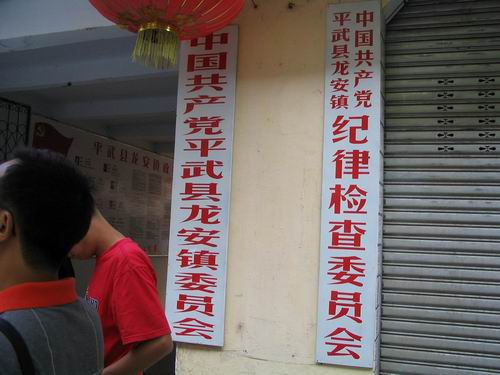 中国共产党平武县龙安镇委员会
中国共产党
平武县龙安镇
纪律检查委员会
平武县龙安镇政